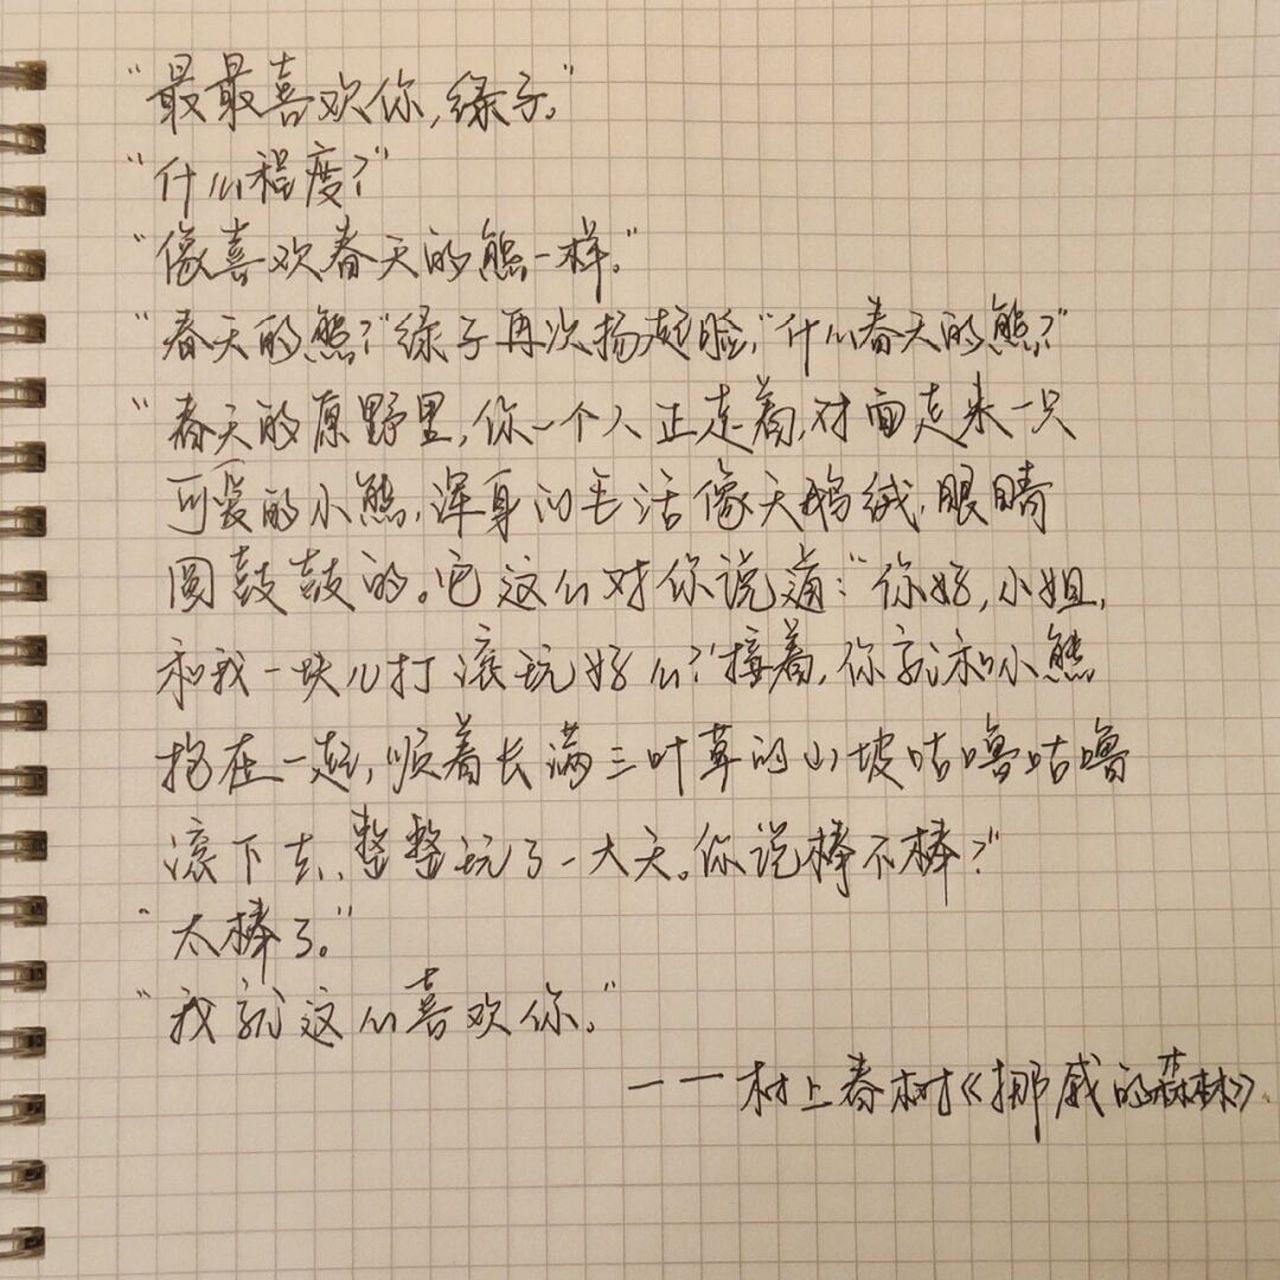 “最最喜欢你,绿子。”
“什么程度?”
“像喜欢春天的熊一样。”
“春天的熊?”绿子再次扬起脸,“什么春天的熊?”
“春天的原野里,你一个人正走着,对面走来一只
可爱的小熊,浑身的毛活像天鹅绒,眼睛
圆鼓鼓的。它这么对你说道:“你好,小姐,
和我一块儿打滚玩好么?”接着,你就和小熊
抱在一起,顺着长满三叶草的山坡咕噜咕噜
滚下去,整整玩了一大天。你说棒不棒?”
“太棒了。”
“我就这么喜欢你。”
——村上春树《挪威的森林》